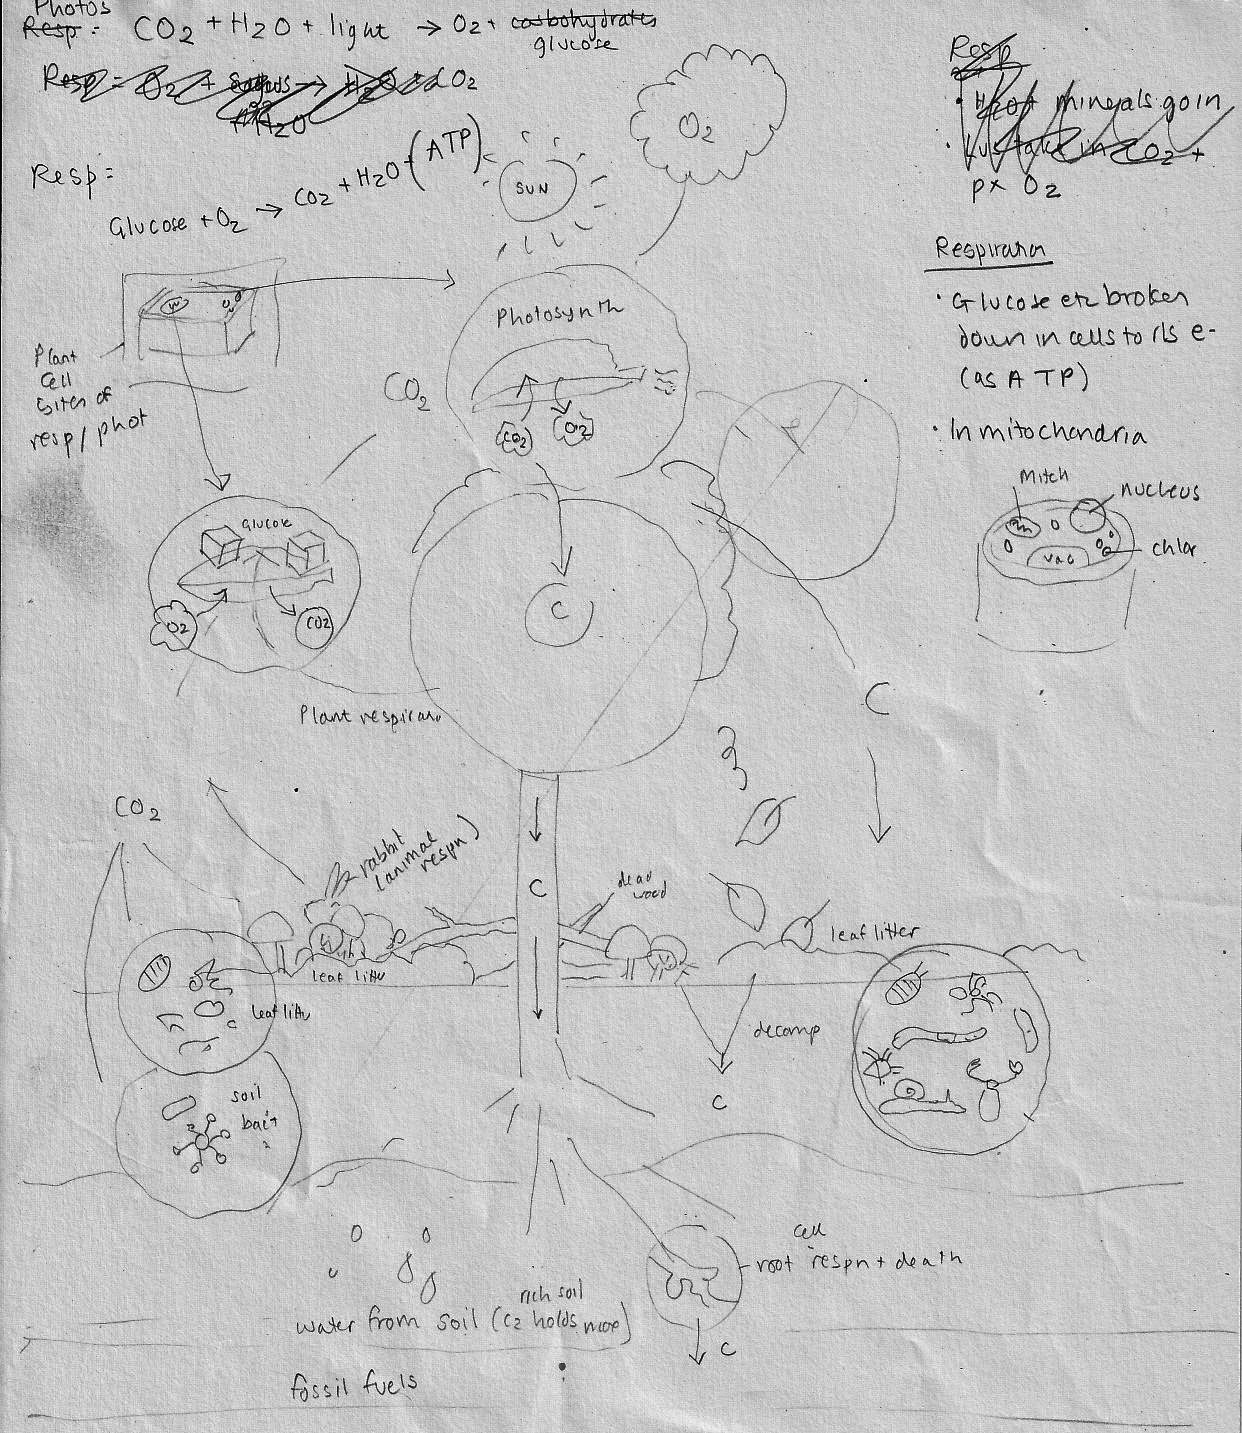 Photos
Resp: CO2 + H2O + light → O2 + carbohydrates
glucose
Resp = O2 + → H2O + CO2
H2O
Resp=
Glucose + O2 → CO2 + H2O + (ATP)
SUN
O2
Resp
• H2O + minerals go in
• take in CO2 +
px O2
Respiration
• Glucose etc broken
down in cells to rls e-
(as ATP)
• In mitochondria
Mitch
nucleus
chlor
vac
W
Plant
Cell
Sites of
resp/phot
Photosynth
CO2
CO2
O2
Glucose
O2
CO2
C
Plant respiran
C
CO2
rabbit
(animal
respn)
C
dead
wood
leaf litter
leaf litter
leaf litter
decomp
C
soil
bact
cell
root respn + death
rich soil
water from soil (C2 holds more)
C
fossil fuels